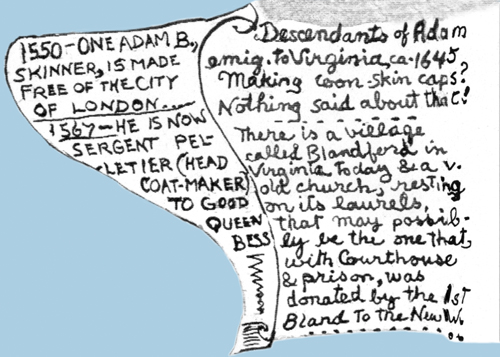 1550-ONE ADAM B.,
SKINNER, IS MADE
FREE OF THE CITY
OF LONDON....
1567-HE IS NOW
SERGENT PEL-
LETIER (HEAD
COAT-MAKER)
TO GOOD
QUEEN
BESS
Descendants of Adam
emig. to Virginia, ca-1645
Making coon-skin caps?
Nothing said about that!
There is a village
called Blandford in
Virginia Today & a v.
old church, resting
on its laurels,
that may possib-
ly be the one that,
with Courthouse
& prison, was
donated by the 1st
Bland To the New W.